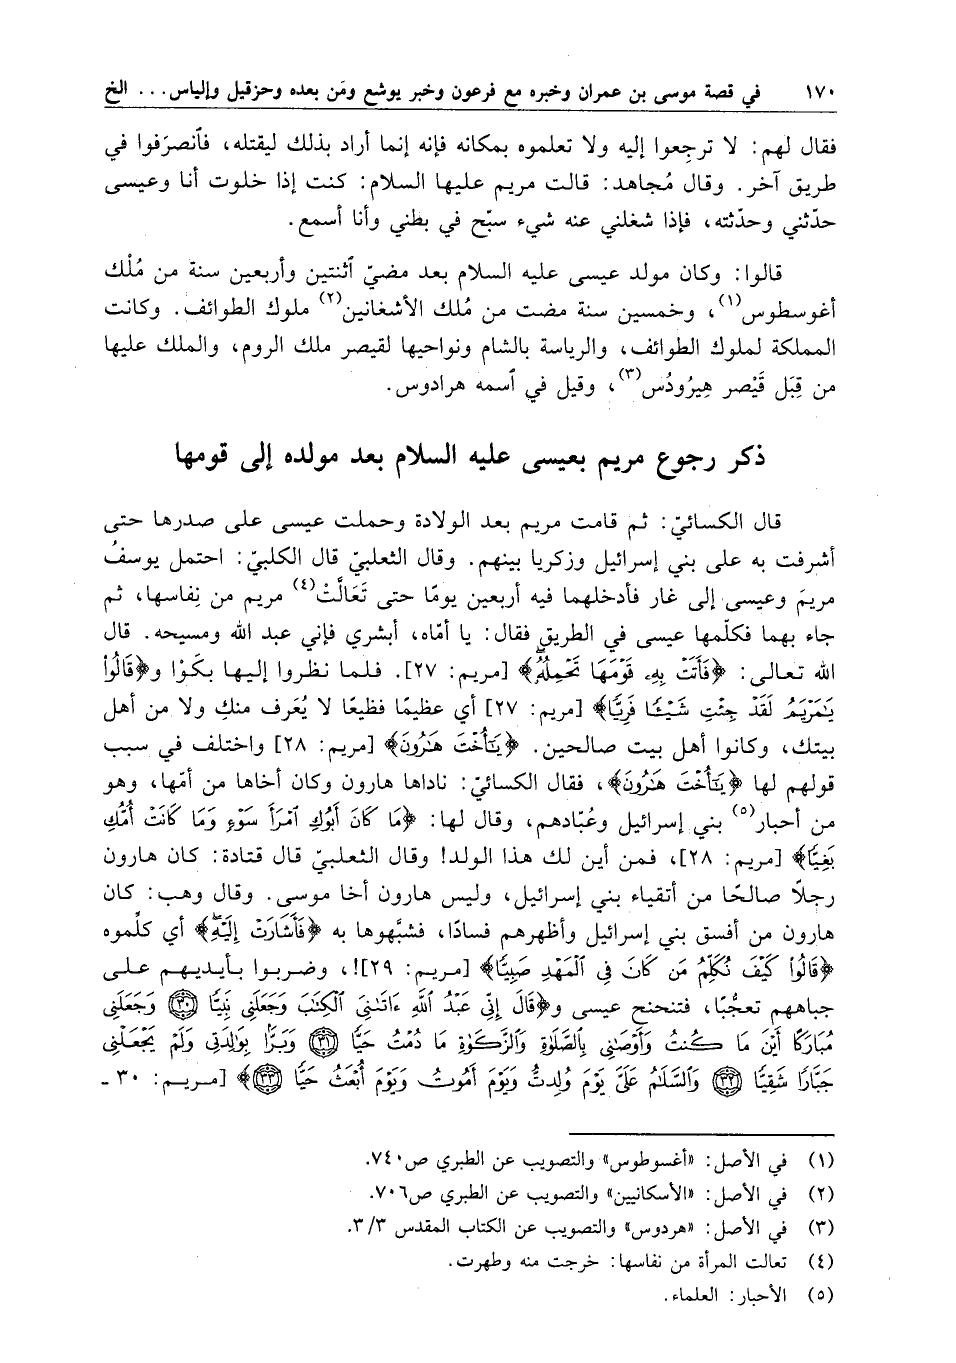 ١٧٠ في قصة موسى بن عمران وخبره مع فرعون وخبر يوشع ومَن بعده وحزقيل وإلياس... الخ
فقال لهم: لا ترجِعوا إليه ولا تعلموه بمكانه فإنه إنما أراد بذلك ليقتله، فٱنصرَفوا في
طريق آخر. وقال مُجاهد: قالت مريم عليها السلام: كنت إذا خلوت أنا وعيسى
حدّثني وحدّثته، فإذا شغلني عنه شيء سبّح في بطني وأنا أسمع.
قالوا: وكان مولد عيسى عليه السلام بعد مضيّ ٱثنتين وأربعين سنة من مُلْك
أغوسطوس(١)، وخمسين سنة مضت من مُلك الأشغانين(٢) ملوك الطوائف. وكانت
المملكة لملوك الطوائف، والرياسة بالشام ونواحيها لقيصر ملك الروم، والملك عليها
من قِبَل قَيْصر هِيرُودُس(٣)، وقيل في ٱسمه هرادوس.
ذكر رجوع مريم بعيسى عليه السلام بعد مولده إلى قومها
قال الكسائيّ: ثم قامت مريم بعد الولادة وحملت عيسى على صدرها حتى
أشرفت به على بني إسرائيل وزكريا بينهم. وقال الثعلبيّ قال الكلبيّ: احتمل يوسفُ
مريمَ وعيسى إلى غار فأدخلهما فيه أربعين يومًا حتى تَعَالَّتْ(٤) مريم من نِفاسها، ثم
جاء بهما فكلّمها عيسى في الطريق فقال: يا أمّاه، أبشري فإني عبد الله ومسيحه. قال
الله تعالى: ﴿فَأَتَتْ بِهِۦ قَوْمَهَا تَحْمِلُهُۥ﴾ [مريم: ٢٧]. فلما نظروا إليها بكَوْا و﴿قَالُوا۟
يَٰمَرْيَمُ لَقَدْ جِئْتِ شَيْـًٔا فَرِيًّا﴾ [مريم: ٢٧] أي عظيمًا فظيعًا لا يُعَرف منكِ ولا من أهل
بيتك، وكانوا أهل بيت صالحين. ﴿يَٰٓأُخْتَ هَٰرُونَ﴾ [مريم: ٢٨] واختلف في سبب
قولهم لها ﴿يَٰٓأُخْتَ هَٰرُونَ﴾، فقال الكسائيّ: ناداها هارون وكان أخاها من أمّها، وهو
من أحبار(٥) بني إسرائيل وعُبّادهم، وقال لها: ﴿مَا كَانَ أَبُوكِ ٱمْرَأَ سَوْءٍ وَمَا كَانَتْ أُمُّكِ
بَغِيًّا﴾ [مريم: ٢٨]، فمن أين لك هذا الولد! وقال الثعلبيّ قال قتادة: كان هارون
رجلًا صالحًا من أتقياء بني إسرائيل، وليس هارون أخا موسى. وقال وهب: كان
هارون من أفسق بني إسرائيل وأظهرهم فسادًا، فشبَّهوها به ﴿فَأَشَارَتْ إِلَيْهِ﴾ أي كلّموه
﴿قَالُوا۟ كَيْفَ نُكَلِّمُ مَن كَانَ فِى ٱلْمَهْدِ صَبِيًّا﴾ [مريم: ٢٩]!، وضربوا بأيديهم على
جباههم تعجُّبًا، فتنحنح عيسى و﴿قَالَ إِنِّى عَبْدُ ٱللَّهِ ءَاتَىٰنِىَ ٱلْكِتَٰبَ وَجَعَلَنِى نَبِيًّا ٣٠ وَجَعَلَنِى
مُبَارَكًا أَيْنَ مَا كُنتُ وَأَوْصَٰنِى بِٱلصَّلَوٰةِ وَٱلزَّكَوٰةِ مَا دُمْتُ حَيًّا ٣١ وَبَرًّۢا بِوَٰلِدَتِى وَلَمْ يَجْعَلْنِى
جَبَّارًا شَقِيًّا ٣٢ وَٱلسَّلَٰمُ عَلَىَّ يَوْمَ وُلِدتُّ وَيَوْمَ أَمُوتُ وَيَوْمَ أُبْعَثُ حَيًّا ٣٣﴾ [مريم: ٣٠ ـ
(١) في الأصل: «أغسوطوس» والتصويب عن الطبري ص٧٤٠.
(٢) في الأصل: «الأسكانيين» والتصويب عن الطبري ص٧٠٦.
(٣) في الأصل: «هردوس» والتصويب عن الكتاب المقدس ٣/٣.
(٤) تعالت المرأة من نفاسها: خرجت منه وطهرت.
(٥) الأحبار: العلماء.